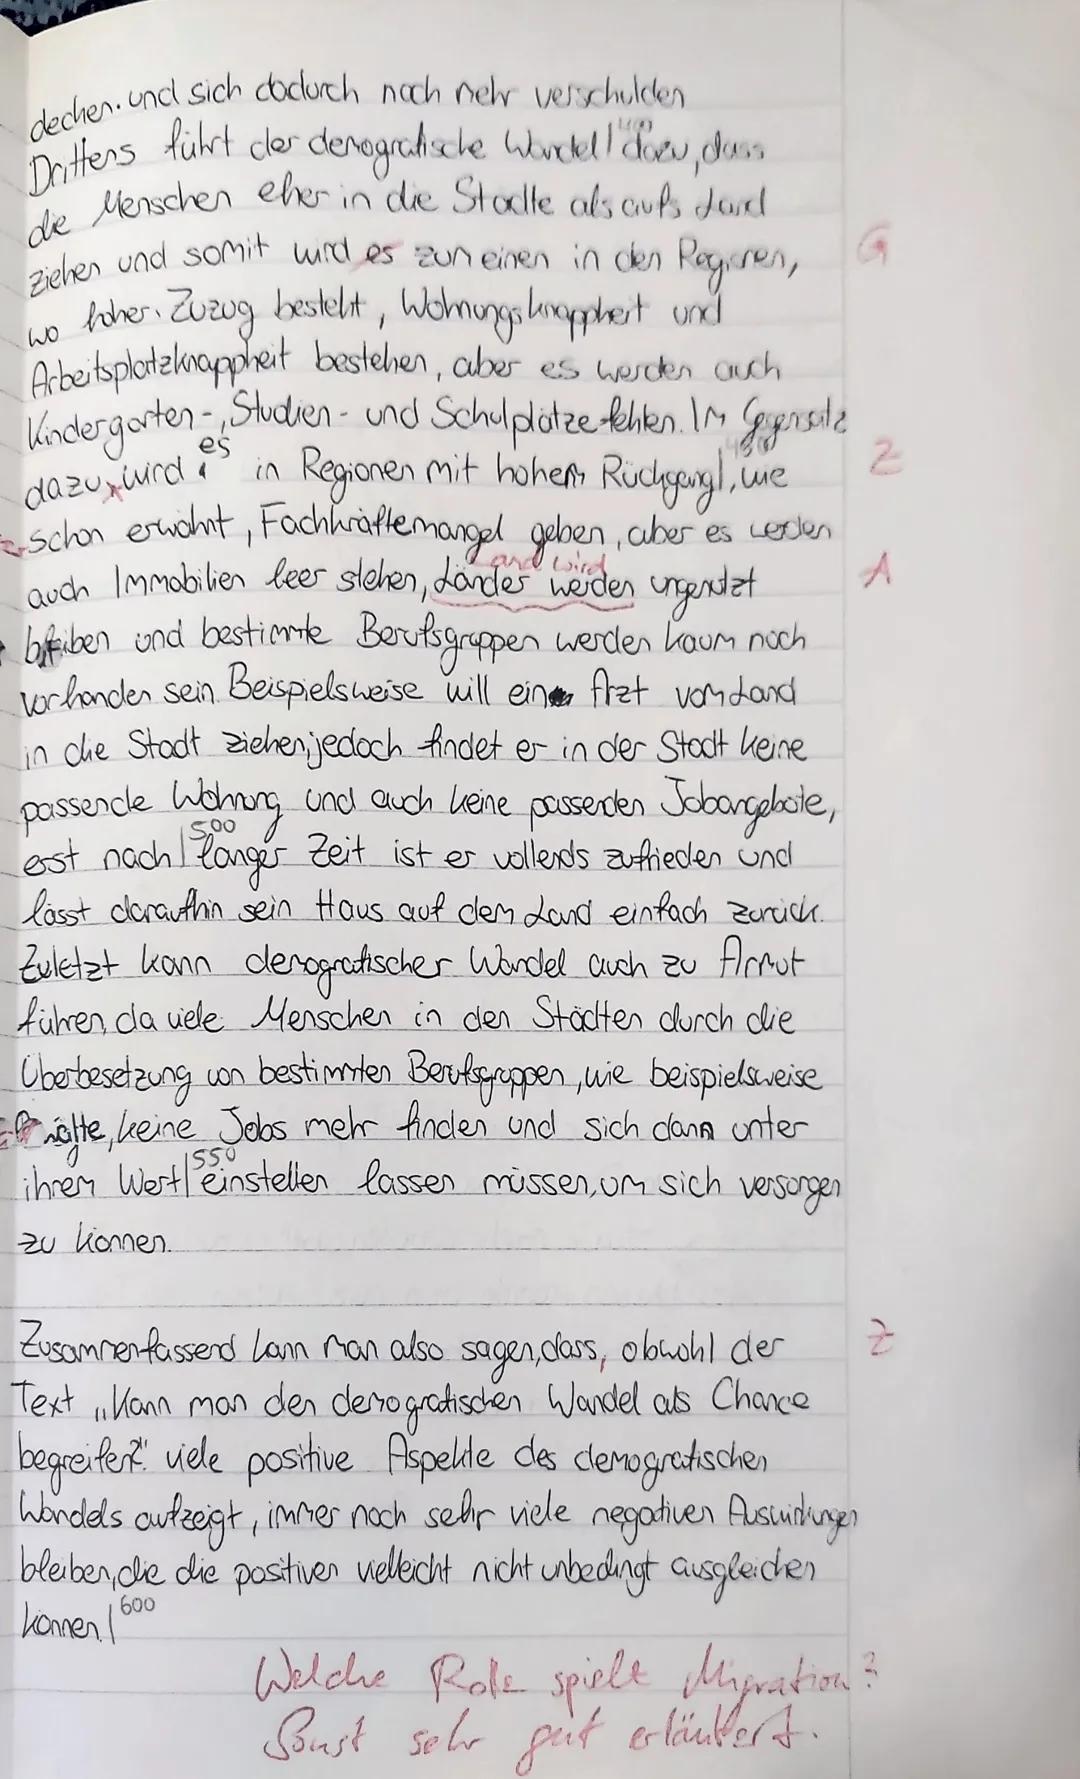 decken. und sich dadurch noch mehr verschulden
Drittens führt der demografische Wandel | 400 dazu, dass
die Menschen eher in die Städte als aufs Land
ziehen und somit wird es zum einen in den Regionen, G
wo hoher Zuzug besteht, Wohnungsknappheit und
Arbeitsplatzknappheit bestehen, aber es werden auch
Kindergarten-, Studien- und Schulplätze fehlen. Im Gegensatz
dazu wird es in Regionen mit hohem Rückgang | 450, wie Z
schon erwähnt, Fachkräftemangel geben, aber es werden
Land wird
auch Immobilien leer stehen, Länder werden ungenutzt A
bleiben und bestimmte Berufsgruppen werden kaum noch
vorhanden sein. Beispielsweise will ein Arzt vom Land
in die Stadt ziehen, jedoch findet er in der Stadt keine
passende Wohnung und auch keine passenden Jobangebote,
erst nach | 500 langer Zeit ist er vollends zufrieden und
lässt daraufhin sein Haus auf dem Land einfach zurück.
Zuletzt kann demografischer Wandel auch zu Armut
führen, da viele Menschen in den Städten durch die
Überbesetzung von bestimmten Berufsgruppen, wie beispielsweise
keine Jobs mehr finden und sich dann unter
ihrem Wert | 550 einstellen lassen müssen, um sich versorgen
zu können.
Zusammenfassend kann man also sagen, dass, obwohl der Z
Text „Kann man den demografischen Wandel als Chance
begreifen?" viele positive Aspekte des demografischen
Wandels aufzeigt, immer noch sehr viele negativen Auswirkungen
bleiben, die die positiven vielleicht nicht unbedingt ausgleichen
können. | 600
Welche Rolle spielt Migration?
Sonst sehr gut erläutert.